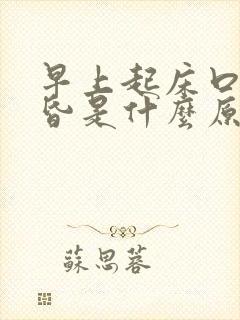 早上起床口
昏是什麼原
蘇思蓉